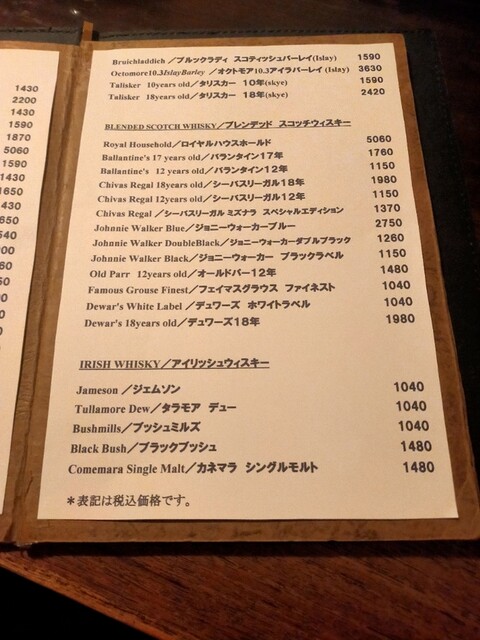 1430
2200
1430
1590
1870
5060
1590
1430
1650
430
650
540
900
Bruichladdich／ブルックラディ スコティッシュバーレイ(Islay) 1590
Octomore10.3IslayBarley／オクトモア10.3アイラバーレイ(Islay) 3630
Talisker 10years old／タリスカー 10年(skye) 1590
Talisker 18years old／タリスカー 18年(skye) 2420
BLENDED SCOTCH WHISKY／ブレンデッド スコッチウィスキー
Royal Household／ロイヤルハウスホールド 5060
Ballantine's 17 years old／バランタイン17年 1760
Ballantine's 12 years old／バランタイン12年 1150
Chivas Regal 18years old／シーバスリーガル18年 1980
Chivas Regal 12years old／シーバスリーガル12年 1150
Chivas Regal／シーバスリーガル ミズナラ スペシャルエディション 1370
Johnnie Walker Blue／ジョニーウォーカーブルー 2750
Johnnie Walker DoubleBlack／ジョニーウォーカーダブルブラック 1260
Johnnie Walker Black／ジョニーウォーカー ブラックラベル 1150
Old Parr 12years old／オールドパー12年 1480
Famous Grouse Finest／フェイマスグラウス ファイネスト 1040
Dewar's White Label／デュワーズ ホワイトラベル 1040
Dewar's 18years old／デュワーズ18年 1980
IRISH WHISKY／アイリッシュウィスキー
Jameson／ジェムソン 1040
Tullamore Dew／タラモア デュー 1040
Bushmills／ブッシュミルズ 1040
Black Bush／ブラックブッシュ 1480
Comemara Single Malt／カネマラ シングルモルト 1480
＊表記は税込価格です。